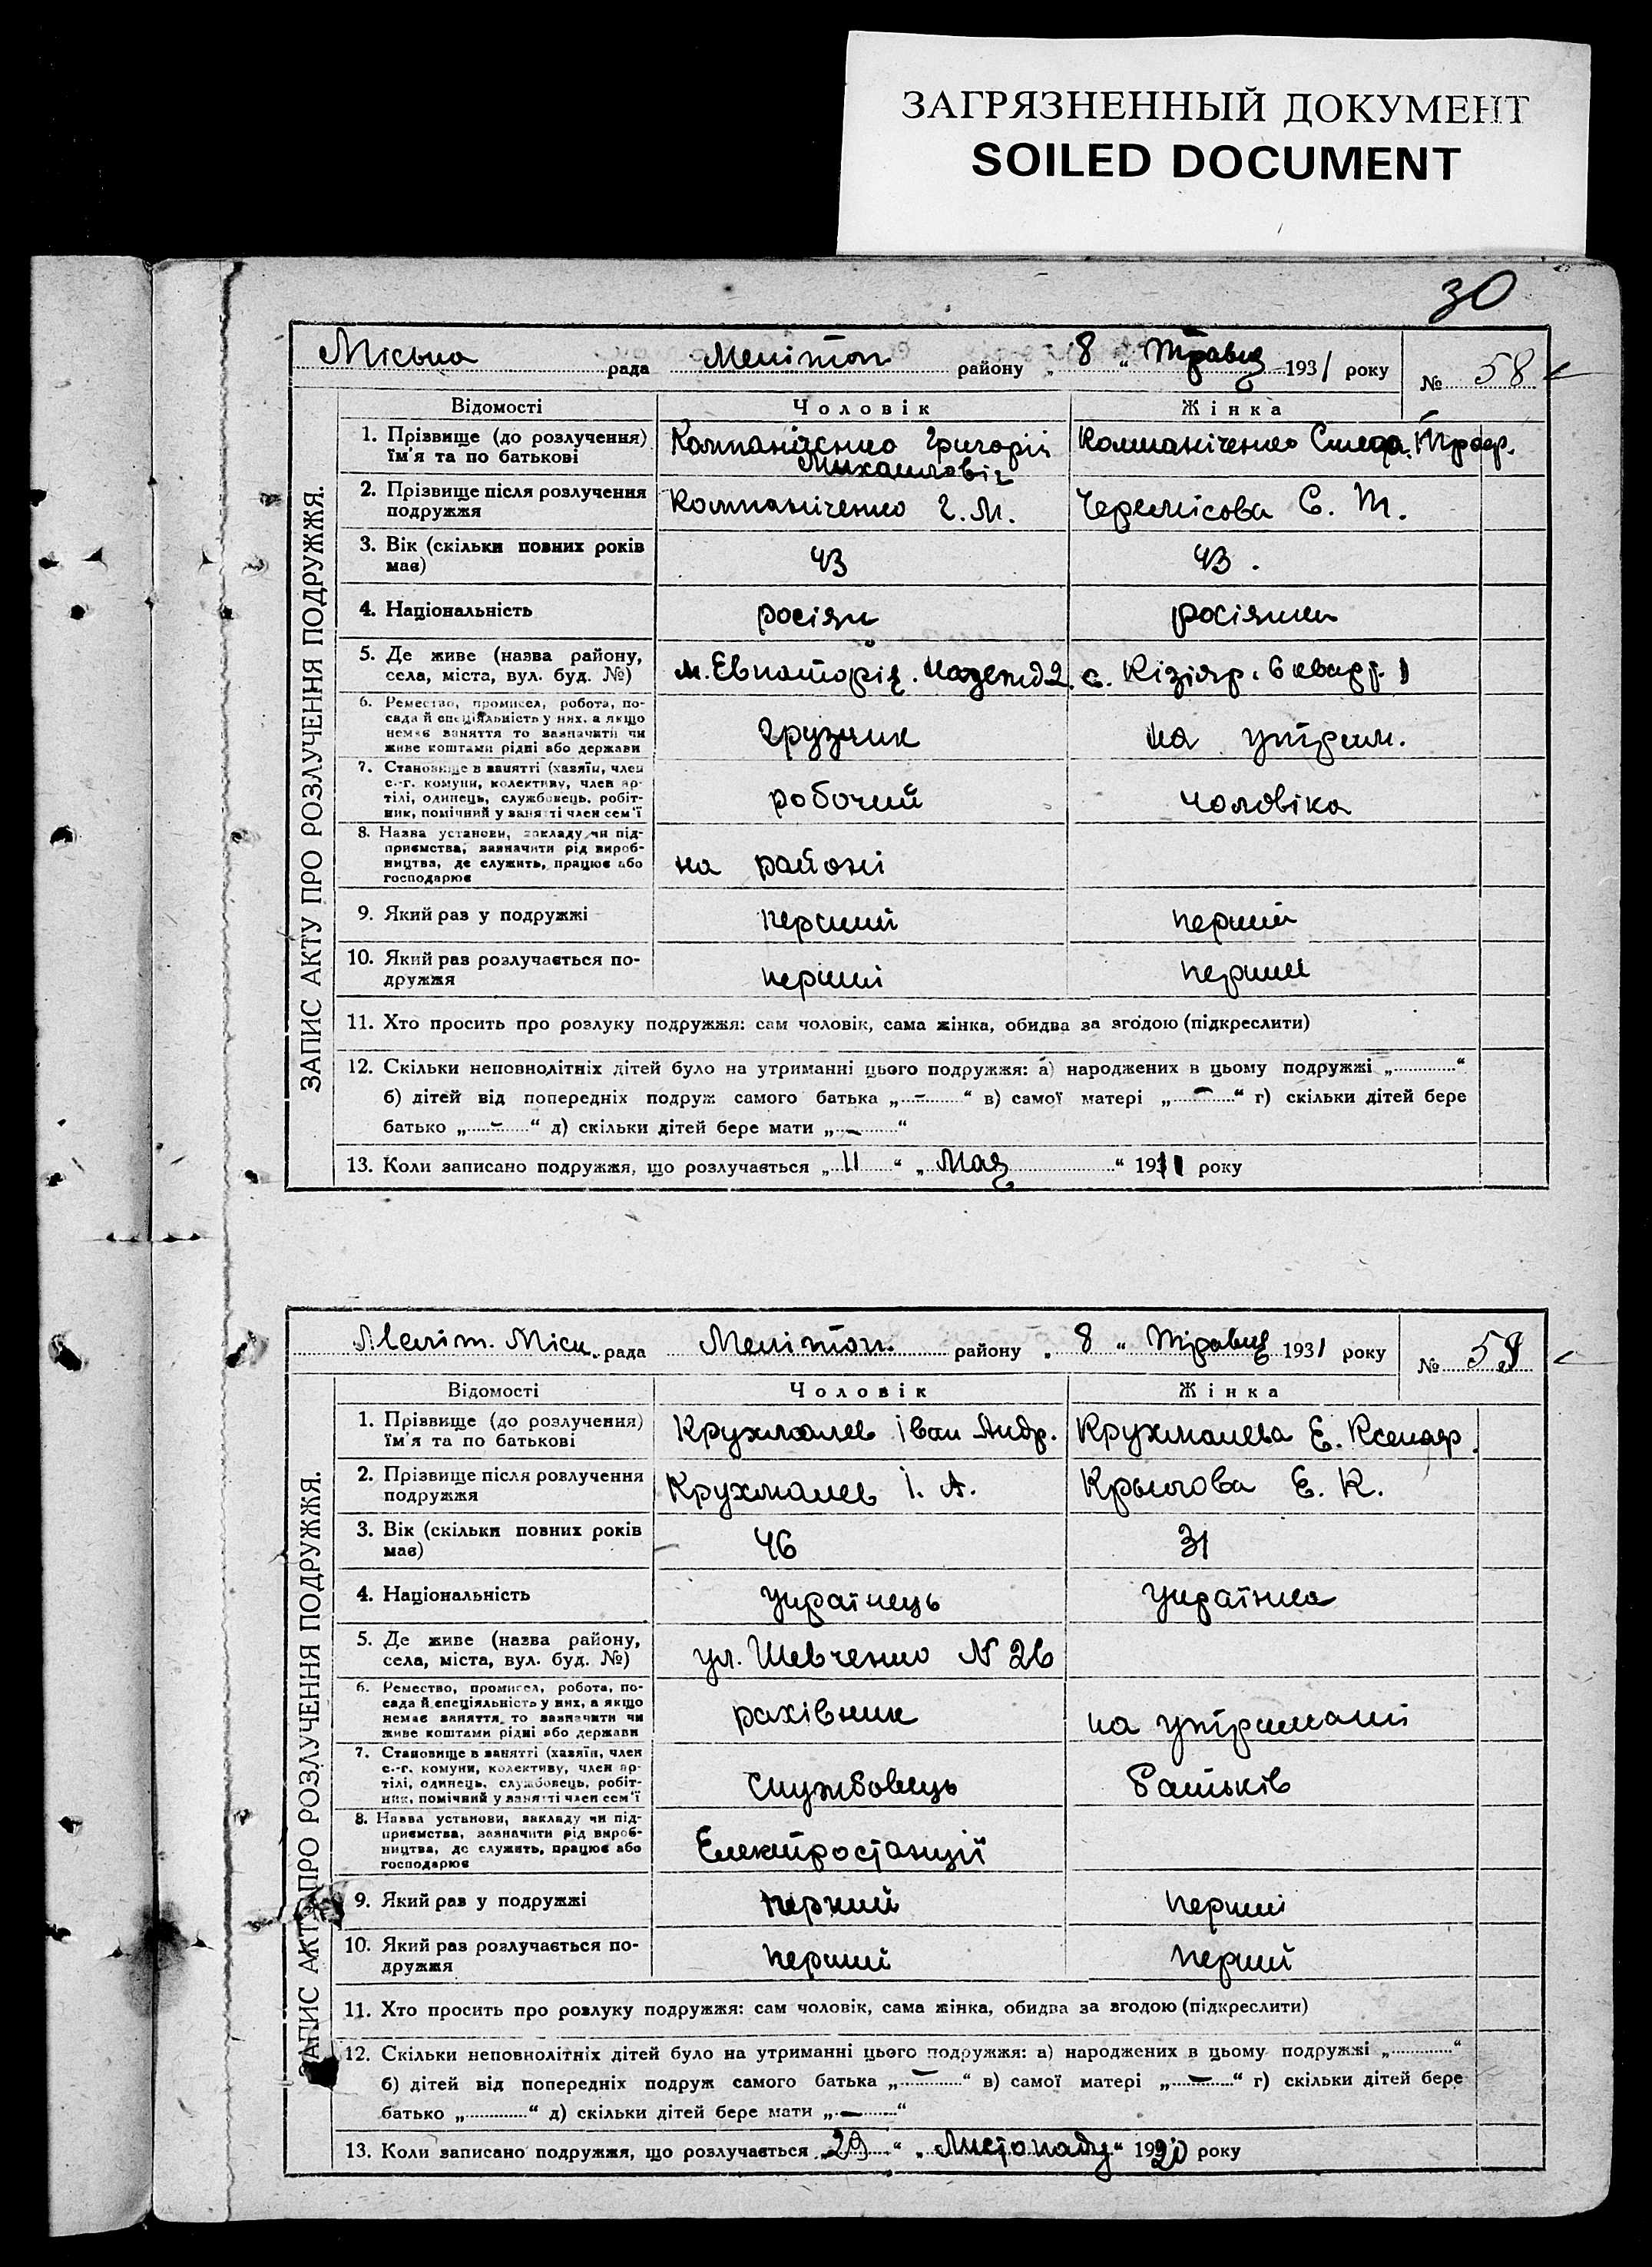 ЗАГРЯЗНЕННЫЙ ДОКУМЕНТ
SOILED DOCUMENT
30
Міська рада Мелітоп району „ 8 “ Травня 1931 року № 58
Відомості Чоловік Жінка
ЗАПИС АКТУ ПРО РОЗЛУЧЕННЯ ПОДРУЖЖЯ.
1. Прізвище (до розлучення) ім'я та по батькові Компаніченко Григорій Михайловіч Компаніченко
2. Прізвище після розлучення подружжя Компаніченко Г. М. Черемісова С. Т.
3. Вік (скільки повних років має) 43 43.
4. Національність росіян росіянка
5. Де живе (назва району, села, міста, вул. буд. №) м. Евпаторія. Надежд 2. с. Кізіяр. 6 кварт. 1
6. Ремество, промисел, робота, посада й спеціяльність у них, а якщо немає заняття то зазначити чи живе коштами рідні або держави грузчик на утрим.
7. Становище в занятті (хазяїн, член с.-г. комуни, колективу, член артілі, одинець, службовець, робітник, помічний у занятті член сем'ї робочий чоловіка
8. Назва установи, закладу чи підприємства, зазначити рід виробництва, де служить, працює або господарює на районі
9. Який раз у подружжі перший перший
10. Який раз розлучається подружжя перший перший
11. Хто просить про розлуку подружжя: сам чоловік, сама жінка, обидва за згодою (підкреслити)
12. Скільки неповнолітніх дітей було на утриманні цього подружжя: а) народжених в цьому подружжі „ “
б) дітей від попередніх подруж самого батька „ - “ в) самої матері „ - “ г) скільки дітей бере
батько „ - “ д) скільки дітей бере мати „ - “
13. Коли записано подружжя, що розлучається „ 11 “ „ Мая “ 1911 року
Меліт. Міськ. рада Мелітоп. району „ 8 “ Травня 1931 року № 59
Відомості Чоловік Жінка
ЗАПИС АКТУ ПРО РОЗЛУЧЕННЯ ПОДРУЖЖЯ.
1. Прізвище (до розлучення) ім'я та по батькові Крухмалев Іван Андр. Крухмалева Е. Ксенаф.
2. Прізвище після розлучення подружжя Крухмалев І. А. Крылова Е. К.
3. Вік (скільки повних років має) 46 31
4. Національність українець українка
5. Де живе (назва району, села, міста, вул. буд. №) ул. Шевченко N 26
6. Ремество, промисел, робота, посада й спеціяльність у них, а якщо немає заняття, то зазначити чи живе коштами рідні або держави рахівник на утриманні
7. Становище в занятті (хазяїн, член с.-г. комуни, колективу, член артілі, одинець, службовець, робітник, помічний у занятті член сем'ї службовець батьків
8. Назва установи, закладу чи підприємства, зазначити рід виробництва, де служить, працює або господарює Електростанції
9. Який раз у подружжі перший перший
10. Який раз розлучається подружжя перший перший
11. Хто просить про розлуку подружжя: сам чоловік, сама жінка, обидва за згодою (підкреслити)
12. Скільки неповнолітніх дітей було на утриманні цього подружжя: а) народжених в цьому подружжі „ “
б) дітей від попередніх подруж самого батька „ - “ в) самої матері „ - “ г) скільки дітей бере
батько „ “ д) скільки дітей бере мати „ - “
13. Коли записано подружжя, що розлучається „ 29 “ „ Листопаду “ 1920 року